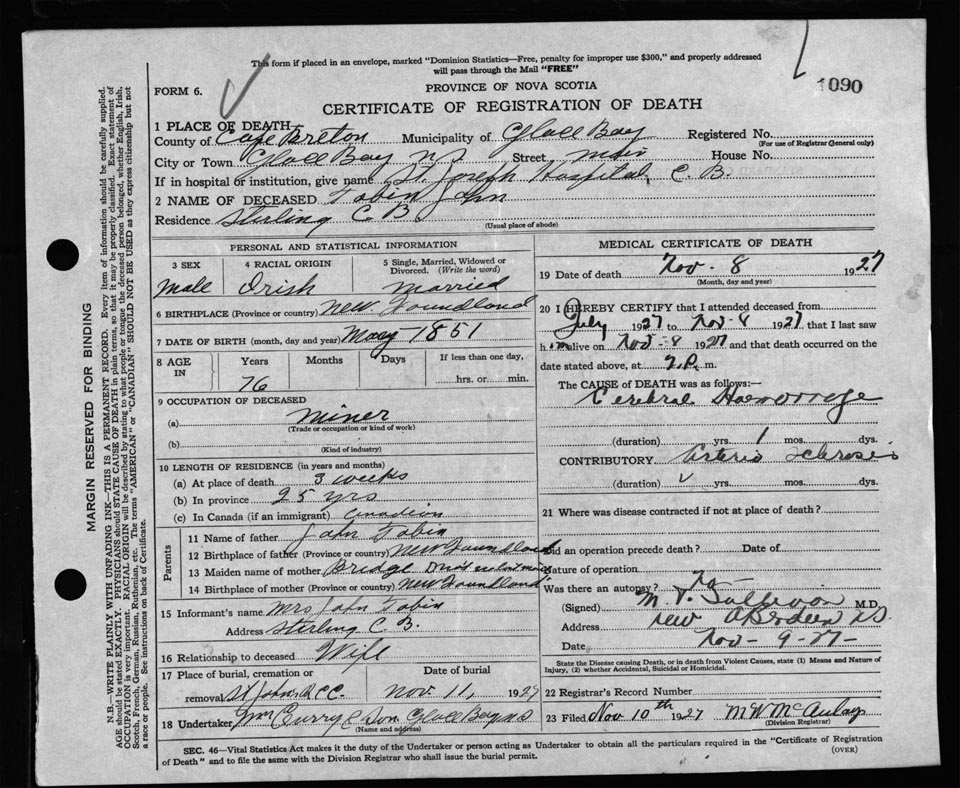 This form if placed in an envelope, marked "Dominion Statistics—Free, penalty for improper use $300," and properly addressed
will pass through the Mail "FREE"
1090
FORM 6.
PROVINCE OF NOVA SCOTIA
CERTIFICATE OF REGISTRATION OF DEATH
1 PLACE OF DEATH
County of Cape Breton Municipality of Glace Bay Registered No.
(For use of Registrar General only)
City or Town Glace Bay N S Street Main House No.
If in hospital or institution, give name St. Joseph Hospital, C. B.
2 NAME OF DECEASED Tobin John
Residence Sterling C B.
(Usual place of abode)
PERSONAL AND STATISTICAL INFORMATION
3 SEX 4 RACIAL ORIGIN 5 Single, Married, Widowed or
Divorced. (Write the word)
Male Irish Married
6 BIRTHPLACE (Province or country) New Foundland
7 DATE OF BIRTH (month, day and year) May 1851
8 AGE IN Years Months Days If less than one day,
76 hrs. or min.
9 OCCUPATION OF DECEASED
(a) Miner
(Trade or occupation or kind of work)
(b)
(Kind of industry)
10 LENGTH OF RESIDENCE (in years and months)
(a) At place of death 3 weeks
(b) In province 25 yrs
(c) In Canada (if an immigrant) Canadian
Parents
11 Name of father John Tobin
12 Birthplace of father (Province or country) New Foundland
13 Maiden name of mother Bridge
14 Birthplace of mother (Province or country) New Foundland
15 Informant's name Mrs John Tobin
Address Sterling C B.
16 Relationship to deceased Wife
17 Place of burial, cremation or Date of burial
removal Nov. 11, 1927
18 Undertaker Wm Curry & Son Glace Bay N S
(Name and address)
MEDICAL CERTIFICATE OF DEATH
19 Date of death Nov - 8 1927
(Month, day and year)
20 I HEREBY CERTIFY that I attended deceased from
July 1927 to Nov - 8 1927, that I last saw
h im alive on Nov - 8 1927 and that death occurred on the
date stated above, at 2 P. m.
The CAUSE of DEATH was as follows:—
Cerebral Haemorrage
(duration) yrs. 1 mos. dys.
CONTRIBUTORY Arterio Sclerosis
(duration) yrs. mos. dys.
21 Where was disease contracted if not at place of death?
Did an operation precede death? Date of
Nature of operation
Was there an autopsy? No
(Signed) M. T. Sullivan M.D.
Address New Aberdeen N.S.
Date Nov - 9 - 27 -
State the Disease causing Death, or in death from Violent Causes, state (1) Means and Nature of
Injury, (2) whether Accidental, Suicidal or Homicidal.
22 Registrar's Record Number
23 Filed Nov 10th 1927 M W McAulay
(Division Registrar)
SEC. 46—Vital Statistics Act makes it the duty of the Undertaker or person acting as Undertaker to obtain all the particulars required in the "Certificate of Registration
of Death" and to file the same with the Division Registrar who shall issue the burial permit.
(OVER)
MARGIN RESERVED FOR BINDING
N.B.—WRITE PLAINLY WITH UNFADING INK—THIS IS A PERMANENT RECORD. Every item of information should be carefully supplied.
AGE should be stated EXACTLY. PHYSICIANS should STATE CAUSE OF DEATH in plain terms, so that it may be properly classified. Exact statement of
OCCUPATION is very important. RACIAL ORIGIN will be described by stating to what people or tongue the deceased person belonged, whether English, Irish,
Scotch, French, German, Russian, Ruthenian, etc. The terms "AMERICAN" or "CANADIAN" SHOULD NOT BE USED as they express citizenship but not
a race or people. See instructions on back of Certificate.